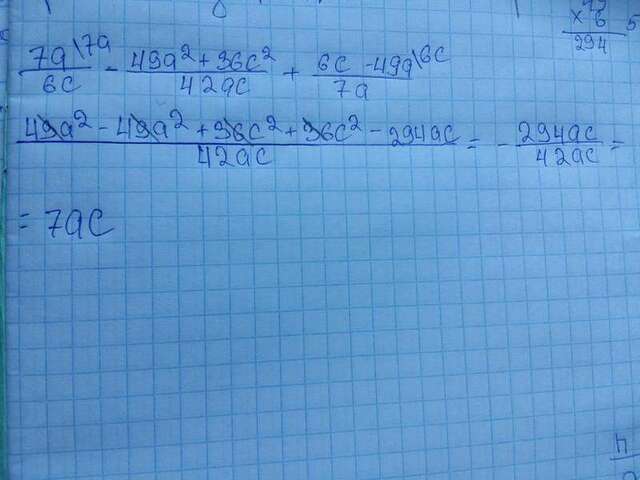 x 6
294
7a\7a/6c - 49a²+36c²/42ac + 6c-49a\6c/7a
49a² - 49a² + 36c² + 36c² - 294ac/42ac = - 294ac/42ac =
= 7ac